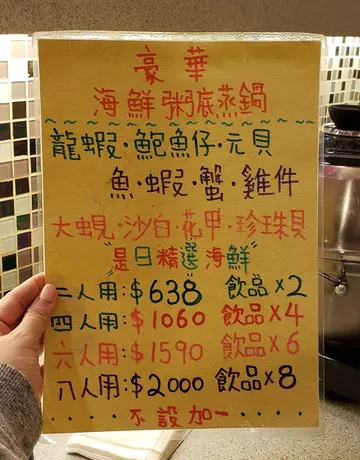 豪華
海鮮粥底蒸鍋
龍蝦·鮑魚仔·元貝
魚·蝦·蟹·雞件
大蜆·沙白·花甲·珍珠貝
是日精選海鮮
二人用:$638 飲品x2
四人用:$1060 飲品x4
六人用:$1590 飲品x6
八人用:$2000 飲品x8
不設加一